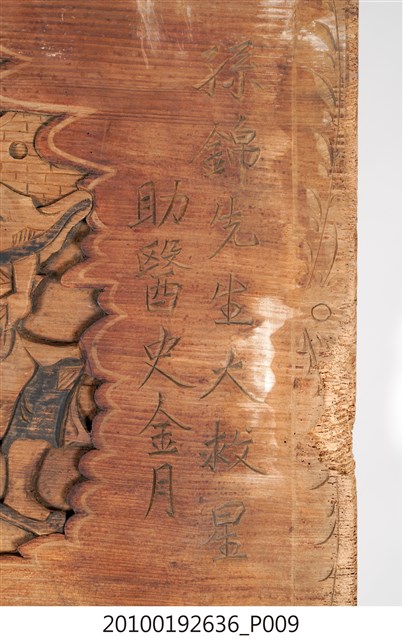 孫錦先生大救星
助醫史金月
20100192636_P009